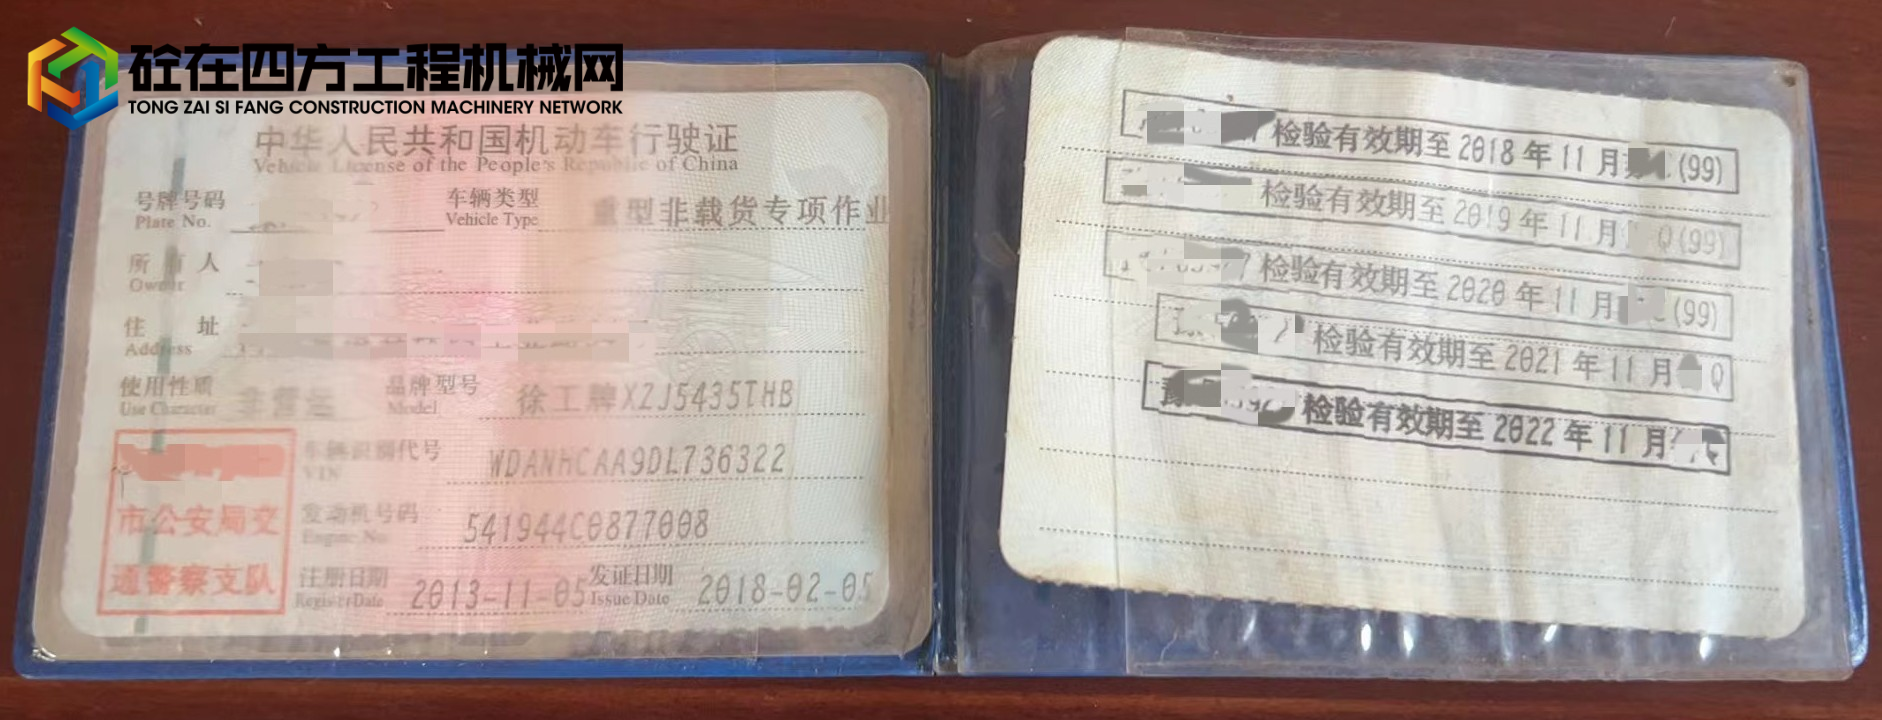 砼在四方工程机械网
TONG ZAI SI FANG CONSTRUCTION MACHINERY NETWORK
中华人民共和国机动车行驶证
Vehicle License of the People's Republic of China
号牌号码
Plate No.
车辆类型
Vehicle Type
重型非载货专项作业
所有人
Owner
住址
Address
使用性质
Use Character
非营运
品牌型号
Model
徐工牌XZJ5435THB
车辆识别代号
VIN
WDANHCAA9DL736322
发动机号码
Engine No.
541944C0877008
注册日期
Register Date
2013-11-05
发证日期
Issue Date
2018-02-05
市公安局交
通警察支队
检验有效期至2018年11月 (99)
检验有效期至2019年11月 Q(99)
检验有效期至2020年11月 (99)
检验有效期至2021年11月 Q
检验有效期至2022年11月